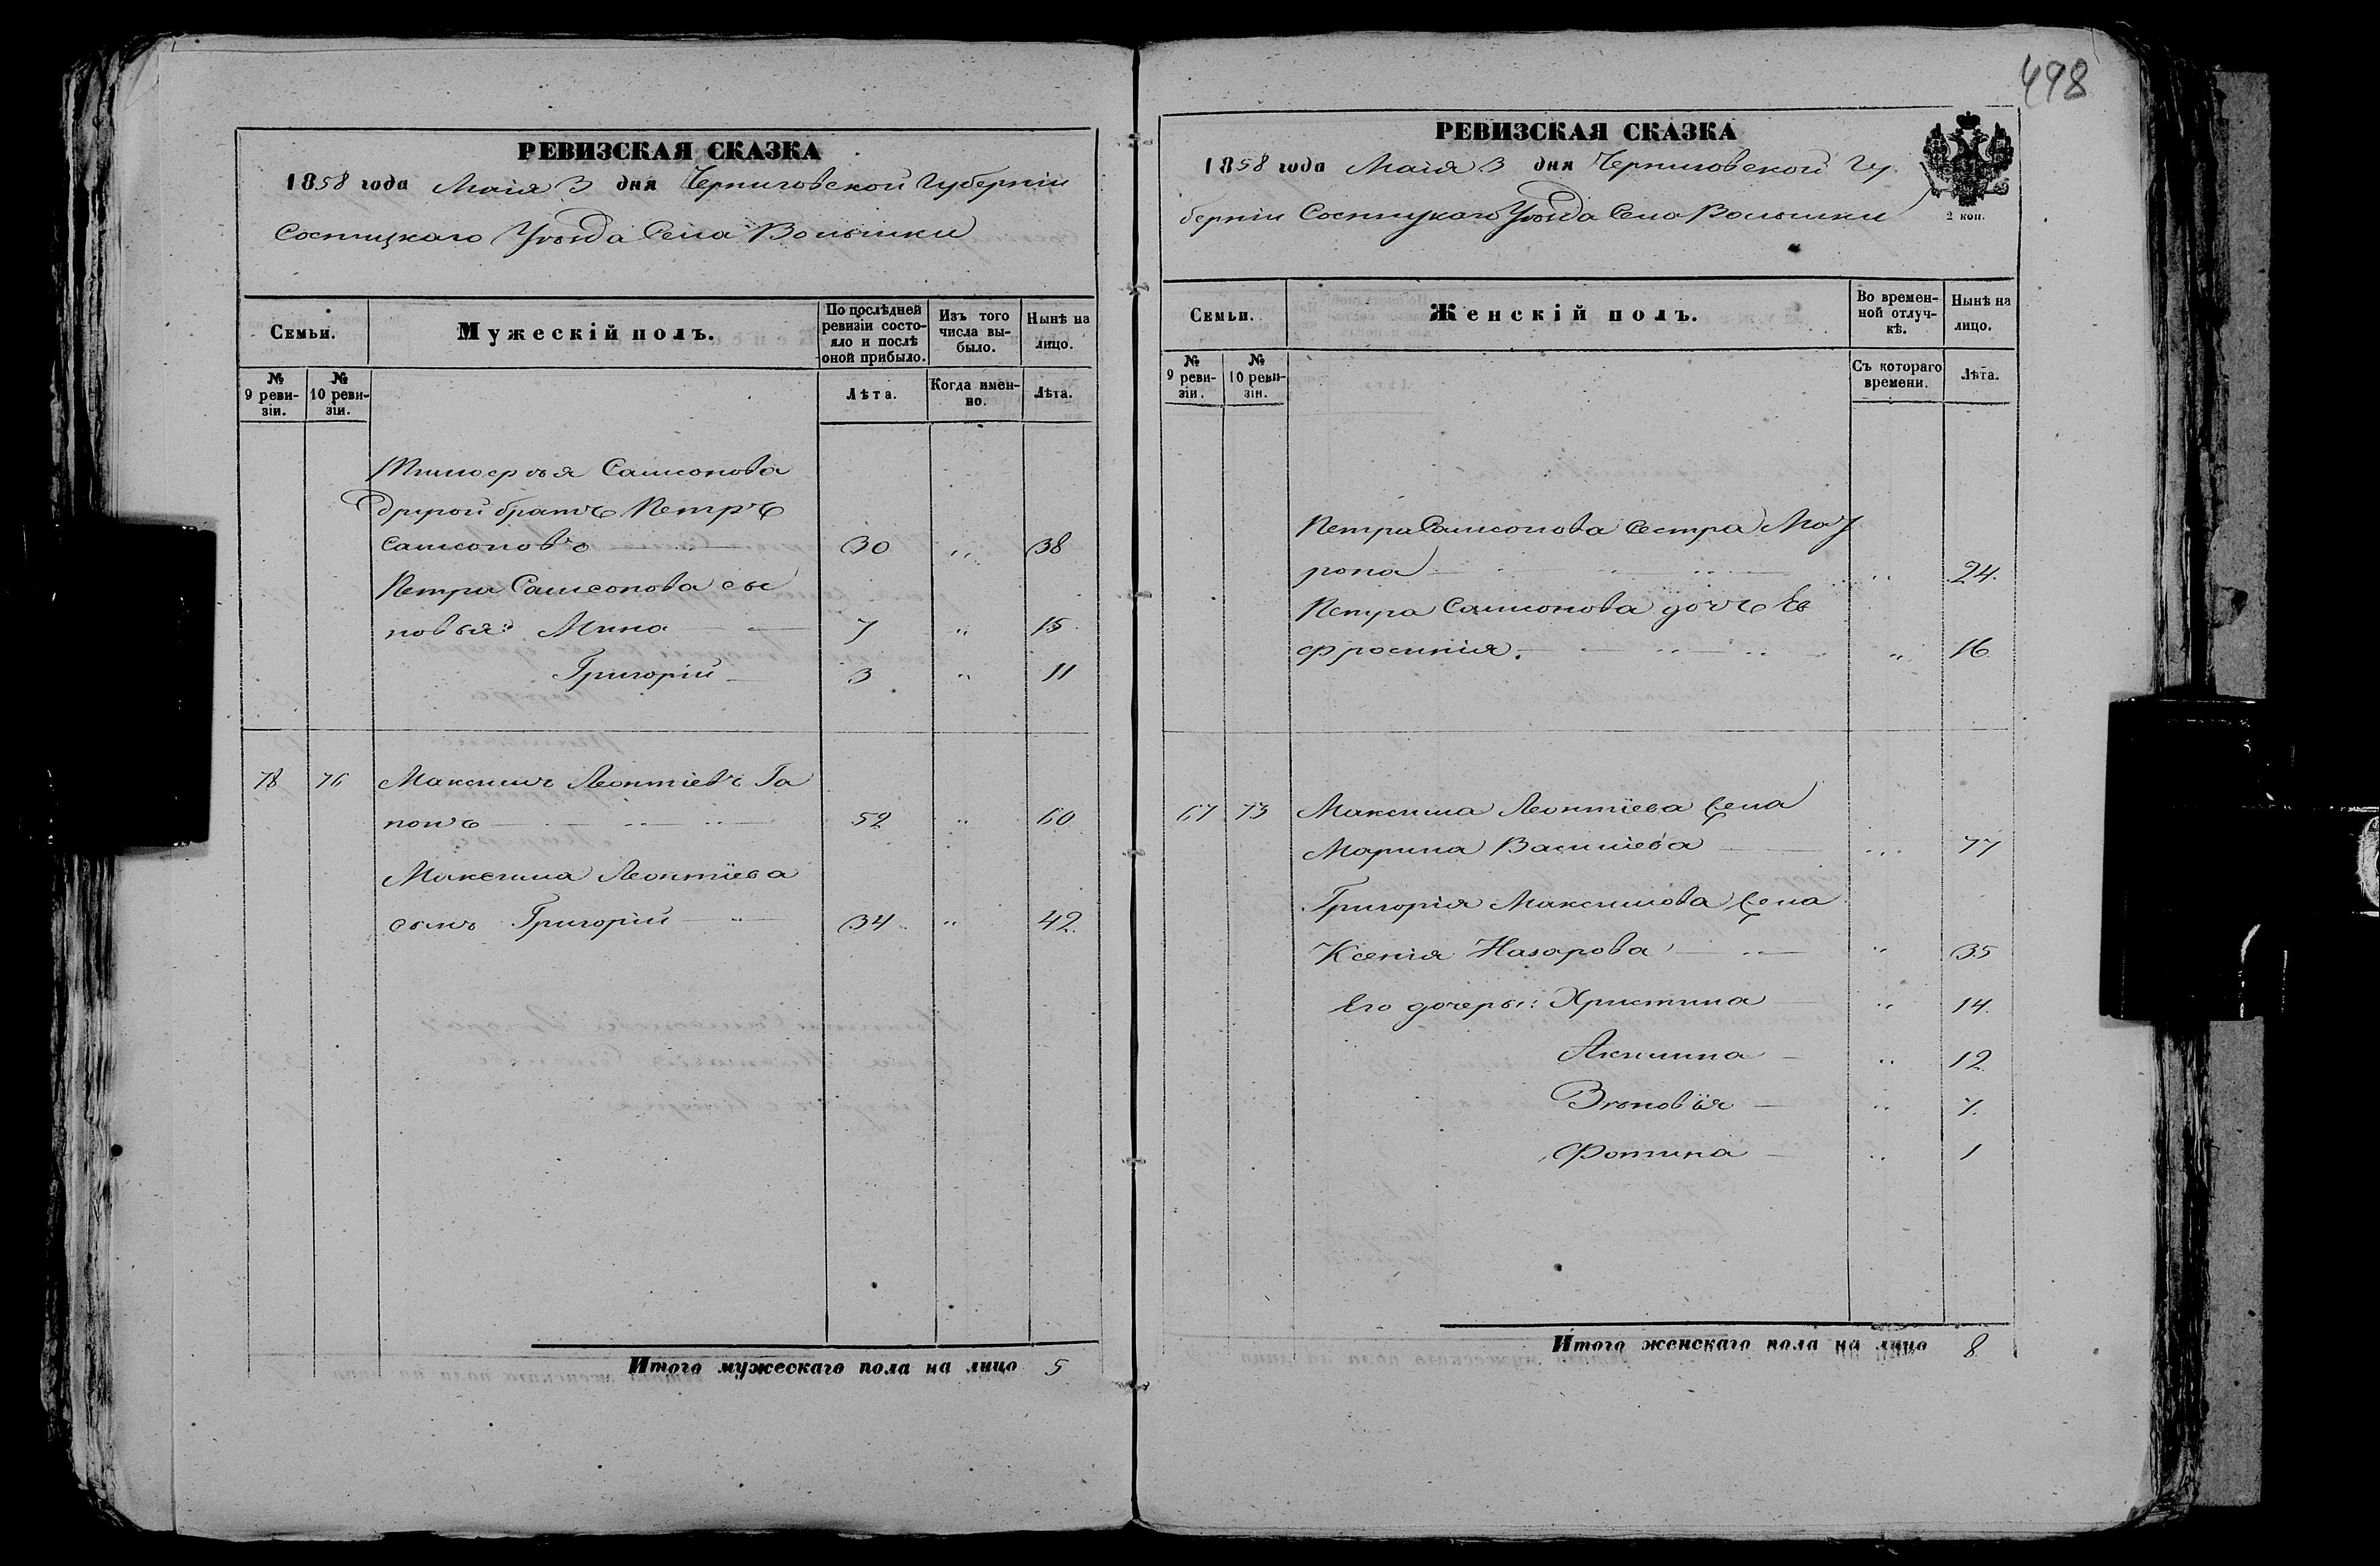 498
РЕВИЗСКАЯ СКАЗКА
1858 года Маія 3 дня Черниговской Губерніи
Сосницкаго Уѣзда Села Волынки
Семьи.
Мужескій полъ.
По послѣдней ревизіи состояло и послѣ оной прибыло.
Изъ того числа выбыло.
Нынѣ на лицо.
№ 9 ревизіи.
№ 10 ревизіи.
Лѣта.
Когда именно.
Лѣта.
Тимоѳѣя Самсонова
другой братъ Петръ
Самсоновъ 30 „ 38
Петра Самсонова сы
новья: Мина 7 „ 15
Григорій 3 „ 11
78 76 Максимъ Леонтіевъ Га
понъ 52 „ 60
Максима Леонтіева
сынъ Григорій 34 „ 42
Итого мужескаго пола на лицо 5
РЕВИЗСКАЯ СКАЗКА
1858 года Маія 3 дня Черниговской Гу
берніи Сосницкаго Уѣзда Села Волынки
2 коп.
Семьи.
Женскій полъ.
Во временной отлучкѣ.
Нынѣ на лицо.
№ 9 ревизіи.
№ 10 ревизіи.
Съ котораго времени.
Лѣта.
Петра Самсонова сестра Мот
рона „ 24
Петра Самсонова дочь Ев
фросинія „ 16
67 73 Максима Леонтіева жена
Марина Василіева „ 77
Григорія Максимова жена
Ксенія Назарова „ 35
Его дочеры: Христина „ 14
Акилина „ 12
Зѣновія „ 7
Фотина „ 1
Итого женскаго пола на лицо 8